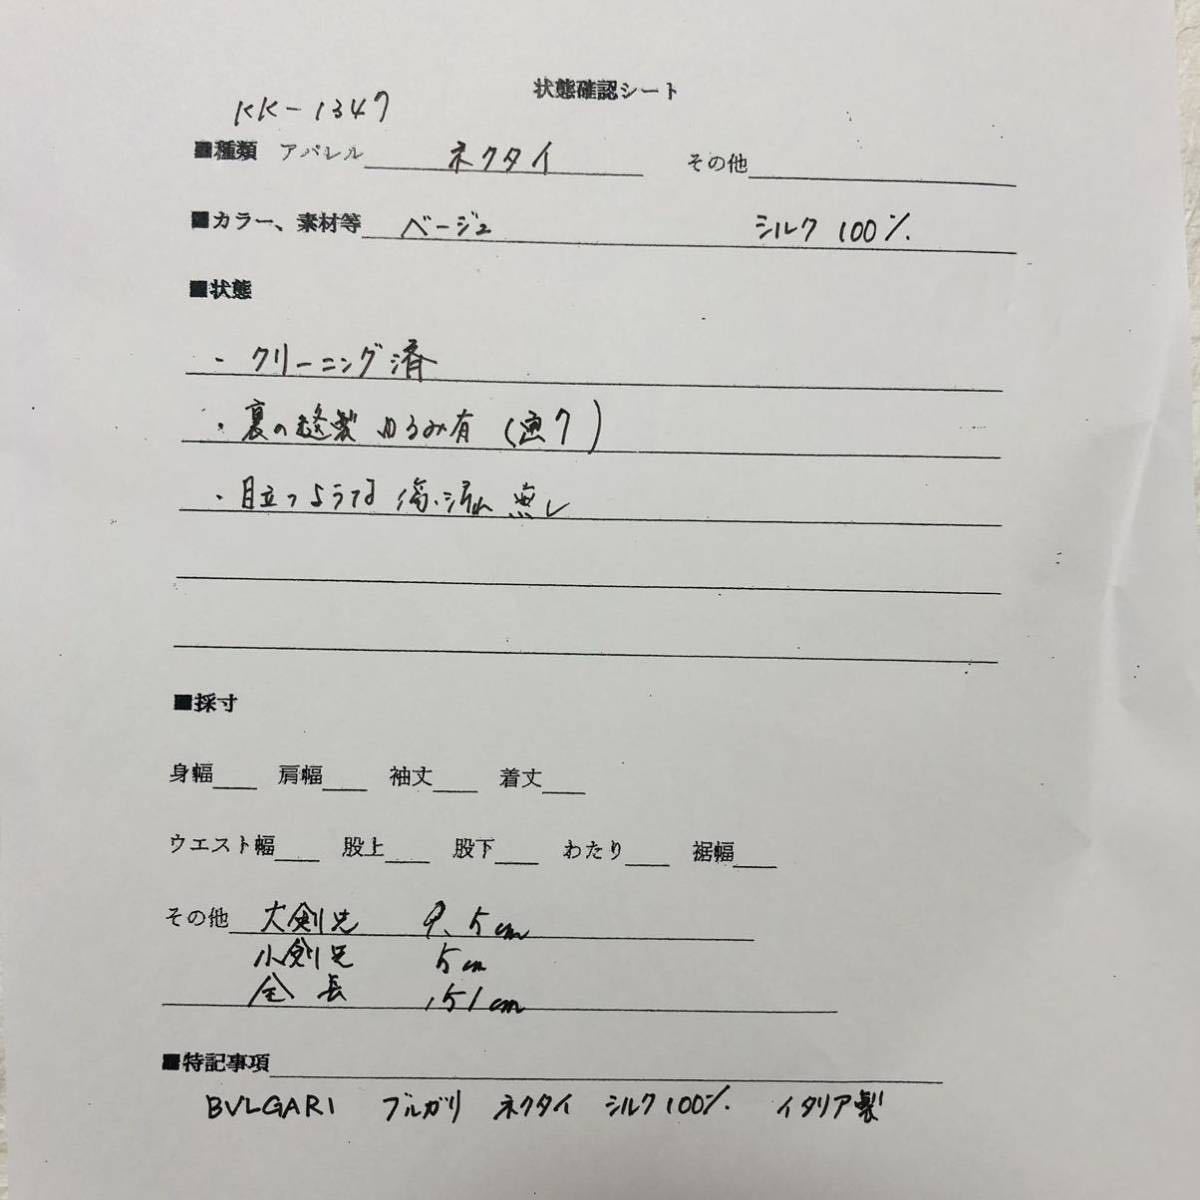 状態確認シート
KK-1347
■種類 アパレル ネクタイ その他
■カラー、素材等 ベージュ シルク 100%
■状態
・クリーニング済
・裏の縫製 ゆるみ有 (画7)
・目立つような 傷・汚れ 無し
■採寸
身幅 肩幅 袖丈 着丈
ウエスト幅 股上 股下 わたり 裾幅
その他 大剣先 9.5cm
小剣先 5cm
全長 151cm
■特記事項
BVLGARI ブルガリ ネクタイ シルク100% イタリア製